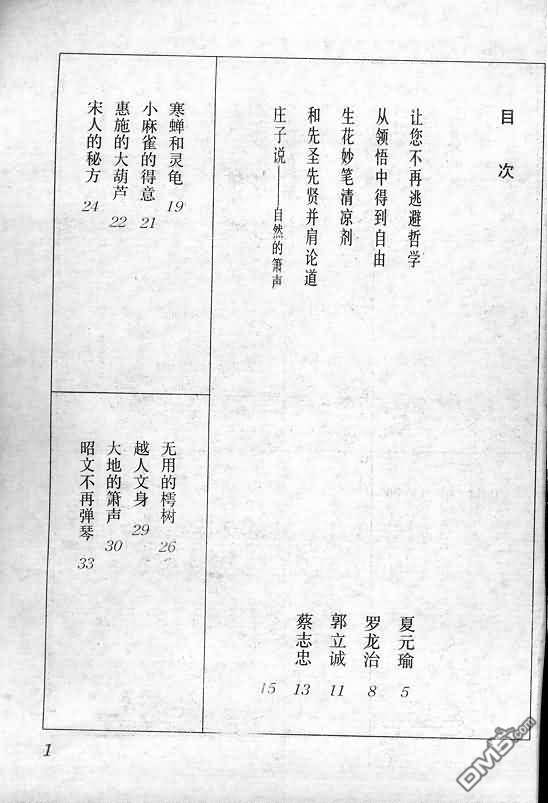 目次
让您不再逃避哲学 夏元瑜 5
从领悟中得到自由 罗龙治 8
生花妙笔清凉剂 郭立诚 11
和先圣先贤并肩论道 蔡志忠 13
庄子说——自然的箫声 15
寒蝉和灵龟 19
小麻雀的得意 21
惠施的大葫芦 22
宋人的秘方 24
无用的樗树 26
越人文身 29
大地的箫声 30
昭文不再弹琴 33
1